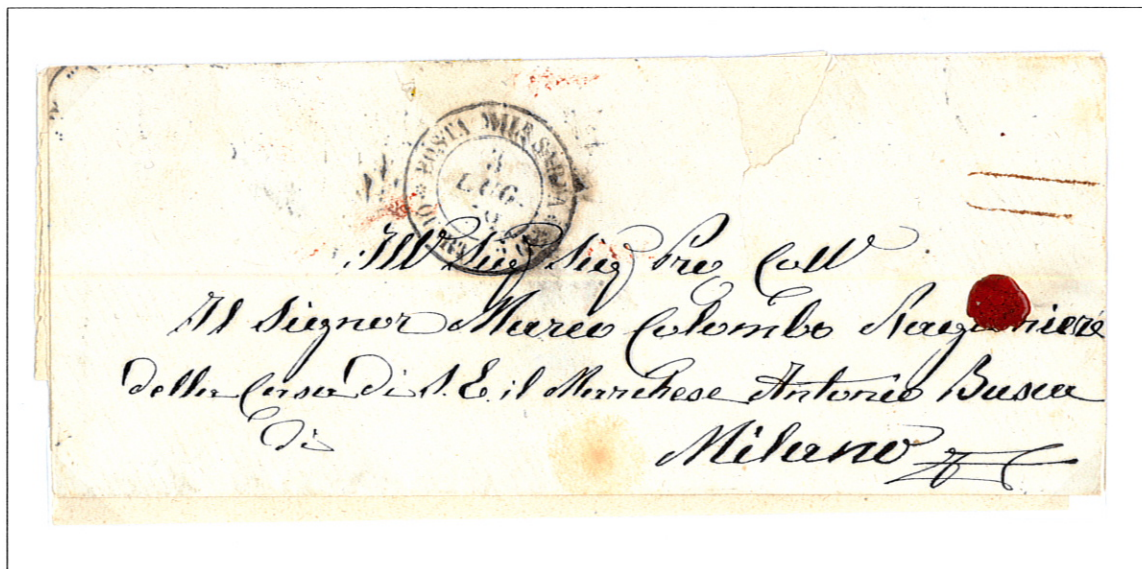 POSTA MILE SARDA
3
LUG.
Ill Sig Sig Pre Coll
Il Signor Marco Colombo
della Casa di S. E. il Marchese Antonio Busca
Di
Milano